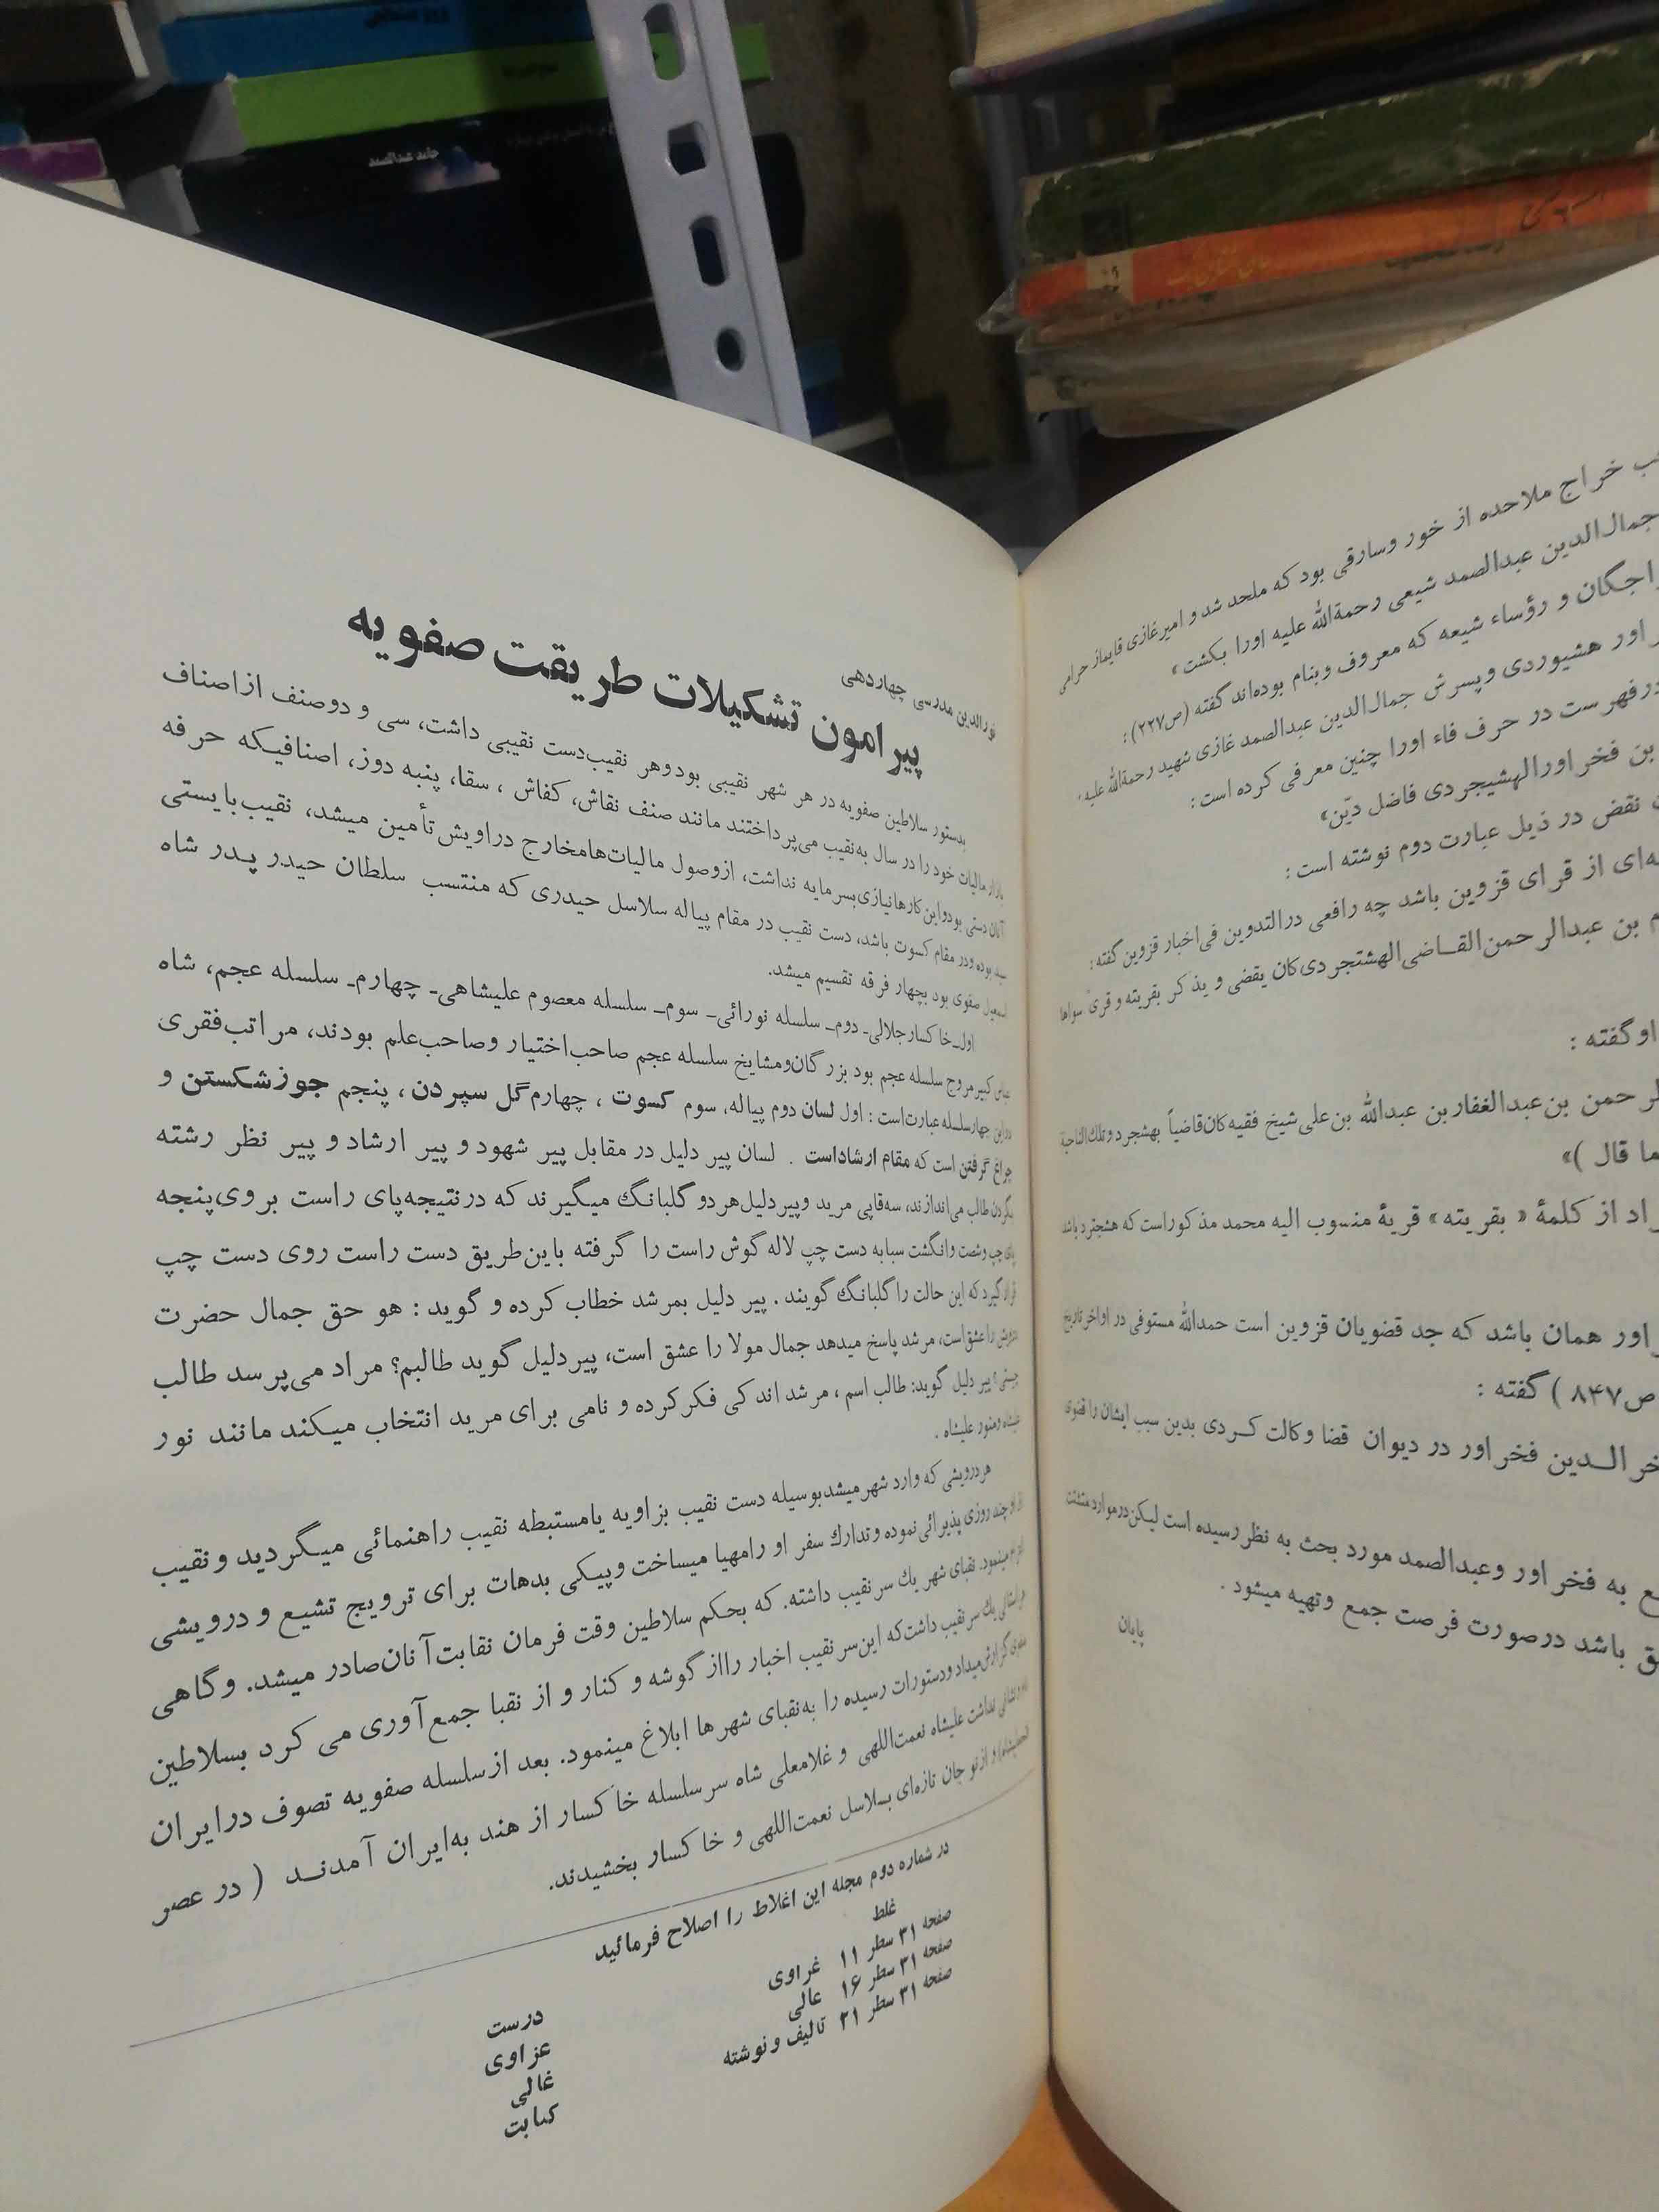 خراج ملاحده از خور وسارقی بود که ملحد شد و امیرغازی قایماز حرامی
جمال‌الدین عبدالصمد شیعی رحمةالله علیه اورا بکشت»
و رؤساء شیعه که معروف وبنام بوده‌اند گفته (ص۲۲۷):
اور هشیوردی وپسرش جمال‌الدین عبدالصمد غازی شهید رحمةالله علیه
درفهرست در حرف فاء اورا چنین معرفی کرده است:
بن فخراورالهشیجردی فاضل دیّن»
نقض در ذیل عبارت دوم نوشته است:
از قرای قزوین باشد چه رافعی درالتدوین فی‌اخبار قزوین گفته:
بن عبدالرحمن‌القاضی‌الهشتجردی‌کان یقضی و یذکر بقریته و قری سواها
اوگفته:
بن‌عبدالغفاربن عبدالله بن‌علی‌شیخ فقیه‌کان‌قاضیاً بهشجرد وتلك‌الناحیة
قال)»
از کلمهٔ «بقریته» قریهٔ منسوب الیه محمد مذکوراست که هشجرد باشد
اور همان باشد که جد قضویان قزوین است حمدالله مستوفی در اواخر تاریخ
ص۸۴۷) گفته:
فخراور در دیوان قضا وکالت کردی بدین سبب ایشان را قضوی
به فخراور وعبدالصمد مورد بحث به نظر رسیده است لیکن‌درموارد متشتت
باشد درصورت فرصت جمع وتهیه میشود.
پایان
نورالدین مدرسی چهاردهی
پیرامون تشکیلات طریقت صفویه
بدستور سلاطین صفویه در هر شهر نقیبی بود وهر نقیب‌دست نقیبی داشت، سی و دوصنف ازاصناف
بازار مالیات خود را در سال به‌نقیب می‌پرداختند مانند صنف نقاش، کفاش، سقا، پنبه دوز، اصنافیکه حرفه
آنان دستی بود واین‌کارها نیازی‌بسرمایه نداشت، ازوصول مالیات‌ها مخارج دراویش‌تأمین میشد، نقیب‌بایستی
بوده ودر مقام کسوت باشد، دست نقیب در مقام پیاله سلاسل حیدری که منتسب سلطان حیدر پدر شاه
اسمعیل صفوی بود بچهار فرقه تقسیم میشد.
اول‌ـ خاکسارجلالی‌ـ دوم‌ـ سلسله نورائی‌ـ سوم‌ـ سلسله معصوم علیشاهی‌ـ چهارم‌ـ سلسله عجم، شاه
عباس کبیر مروج سلسله عجم بود بزرگان‌ومشایخ سلسله عجم صاحب‌اختیار وصاحب‌علم بودند، مراتب‌فقری
چهارسلسله عبارت‌است: اول لسان دوم پیاله، سوم کسوت، چهارم گل سپردن، پنجم جوزشکستن و
چراغ گرفتن است که مقام ارشاداست. لسان پیر دلیل در مقابل پیر شهود و پیر ارشاد و پیر نظر رشته
بگردن طالب می‌اندازند، سه‌قاپی مرید وپیردلیل‌هردو گلبانگ میگیرند که درنتیجه‌پای راست بروی‌پنجه
پای چپ وشصت وانگشت سبابه دست چپ لاله گوش راست را گرفته باین‌طریق دست راست روی دست چپ
قرار گیرد که این حالت را گلبانگ گویند. پیر دلیل بمرشد خطاب کرده و گوید: هو حق جمال حضرت
درویش را عشق‌است، مرشد پاسخ میدهد جمال مولا را عشق است، پیردلیل گوید طالبم؟ مراد می‌پرسد طالب
چیستی؟ پیر دلیل گوید: طالب اسم، مرشد اندکی فکرکرده و نامی برای مرید انتخاب میکند مانند نور
علیشاه ومنور علیشاه.
هردرویشی که وارد شهرمیشد بوسیله دست نقیب بزاویه یامستبطه نقیب راهنمائی میگردید ونقیب
از او چند روزی پذیرائی نموده وتدارك سفر او رامهیا میساخت وپیکی بدهات برای ترویج تشیع و درویشی
مینمود. نقبای شهر یك سر نقیب داشته. که بحکم سلاطین وقت فرمان نقابت‌آنان‌صادر میشد. وگاهی
یك سرنقیب داشت‌که این‌سرنقیب اخبار رااز گوشه و کنار و از نقبا جمع‌آوری می کرد بسلاطین
صفوی گزارش‌میداد ودستورات رسیده را به‌نقبای شهرها ابلاغ مینمود. بعد ازسلسله صفویه تصوف درایران
نداشت علیشاه نعمت‌اللهی و غلامعلی شاه سرسلسله خاکسار از هند به‌ایران آمدند (در عصر
و ازنو جان تازه‌ای بسلاسل نعمت‌اللهی و خاکسار بخشیدند.
در شماره دوم مجله این اغلاط را اصلاح فرمائید
غلط درست
صفحه ۳۱ سطر ۱۱ غراوی عزاوی
صفحه ۳۱ سطر ۱۶ عالی غالی
صفحه ۳۱ سطر ۲۱ تالیف ونوشته کتابت